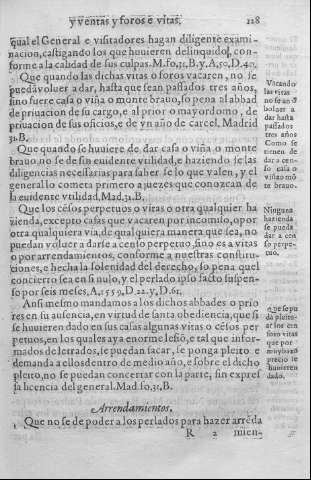 y ventas y foros e vitas. 128
qual el General e visitadores hagan diligente exami-
nacion, castigando los que huuieren delinquido, con-
forme a la calidad de sus culpas. M.so,31,B.y.A,59,D.40,
Que quando las dichas vitas o foros vacaren, no se
pueda voluer a dar, hasta que sean passados tres años,
sino fuere casa o viña o monte brauo, so pena al abbad
de priuacion de su cargo, e al prior o mayordomo, de
priuacion de sus oficios, e de vn año de carcel. Madrid
31.B.
Que quando se huuiere de dar casa o viña o monte
brauo, no se de sin euidente vtilidad, e haziendo se las
diligencias necessarias para saber se lo que valen, y el
general lo cometa primero a juezes que conozcan de
la euidente vtilidad, Mad,31.B.
Que los cẽsos perpetuos o vitas o otra qualquier ha
zienda, excepto casas que vacaren por incomiso, o por
otra qualquiera via, de qualquiera manera que sea, no
puedan voluer a darse a censo perpetuo, sino es a vitas
o por arrendamientos, conforme a nuestras constitu-
ciones, e hecha la solenidad del derecho, so pena quel
concierto sea en si nulo, y el perlado ipso facto suspen-
so por seis meses, A,1559,D.22.y,D.61,
Ansi mesmo mandamos a los dichos abbades o prio
res en su ausencia, en virtud de santa obediencia, que si
se huuieren dado en sus casas algunas vitas o cẽsos per
petuos, en los quales aya enorme lesiõ, e tal que infor-
mados de letrados, se puedan sacar, se ponga pleito e
demanda a ellos dentro de medio año, e sobre el dicho
pleito, no se puedan concertar con la parte, sin expres
sa licencia del general. Mad.so,31,B.
Arrendamientos.
1 Que no se de poder a los perlados para hazer arrẽda
R 2 mien-
Vacando
las vitas
no se an d
boluer a
dar hasta
passados
tres años
Como se
tienen de
dar a cen-
so casa o
viña o mõ
te brauo.
Ninguna
hazienda
se pueda
dar a cen
so perpe-
tuo,
Que se pō
da pleito
ar los cen
foro vitas
que por
precio se
huuieren
dado.